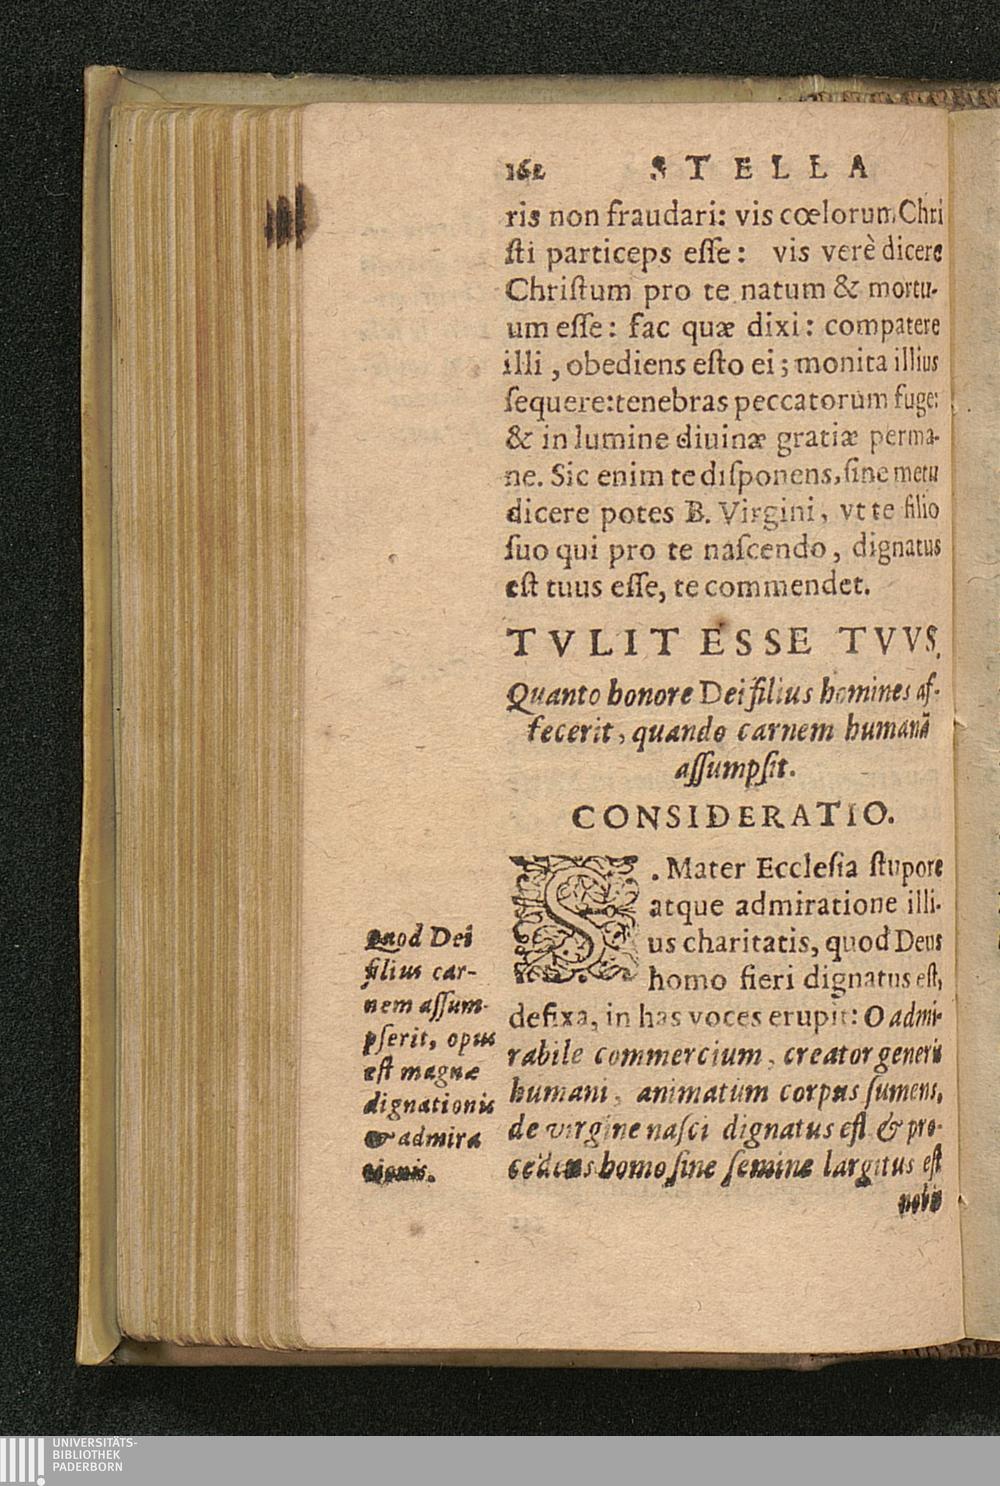 162 STELLA
ris non fraudari: vis cœlorum Chri
ſti particeps eſſe: vis verè dicere
Chriſtum pro te natum & mortu-
um eſſe: fac quæ dixi: compatere
illi, obediens eſto ei; monita illius
ſequere: tenebras peccatorum fuge:
& in lumine diuinæ gratiæ perma-
ne. Sic enim te diſponens, ſine metu
dicere potes B. Virgini, vt te filio
ſuo qui pro te naſcendo, dignatus
eſt tuus eſſe, te commendet.
TVLIT ESSE TVVS.
Quanto honore Dei filius homines af-
fecerit, quando carnem humanã
aſſumpſit.
CONSIDERATIO.
S. Mater Eccleſia ſtupore
atque admiratione illi-
us charitatis, quod Deus
homo fieri dignatus eſt,
defixa, in has voces erupit: O admi-
rabile commercium, creator generis
humani, animatum corpus ſumens,
de virgine naſci dignatus eſt & pro-
cedens homo ſine ſemine largitus eſt
nobis
Quod Dei
filius car-
nem aſſum-
pſerit, opus
eſt magnæ
dignationis
& admira
tionis.
UNIVERSITÄTS-
BIBLIOTHEK
PADERBORN